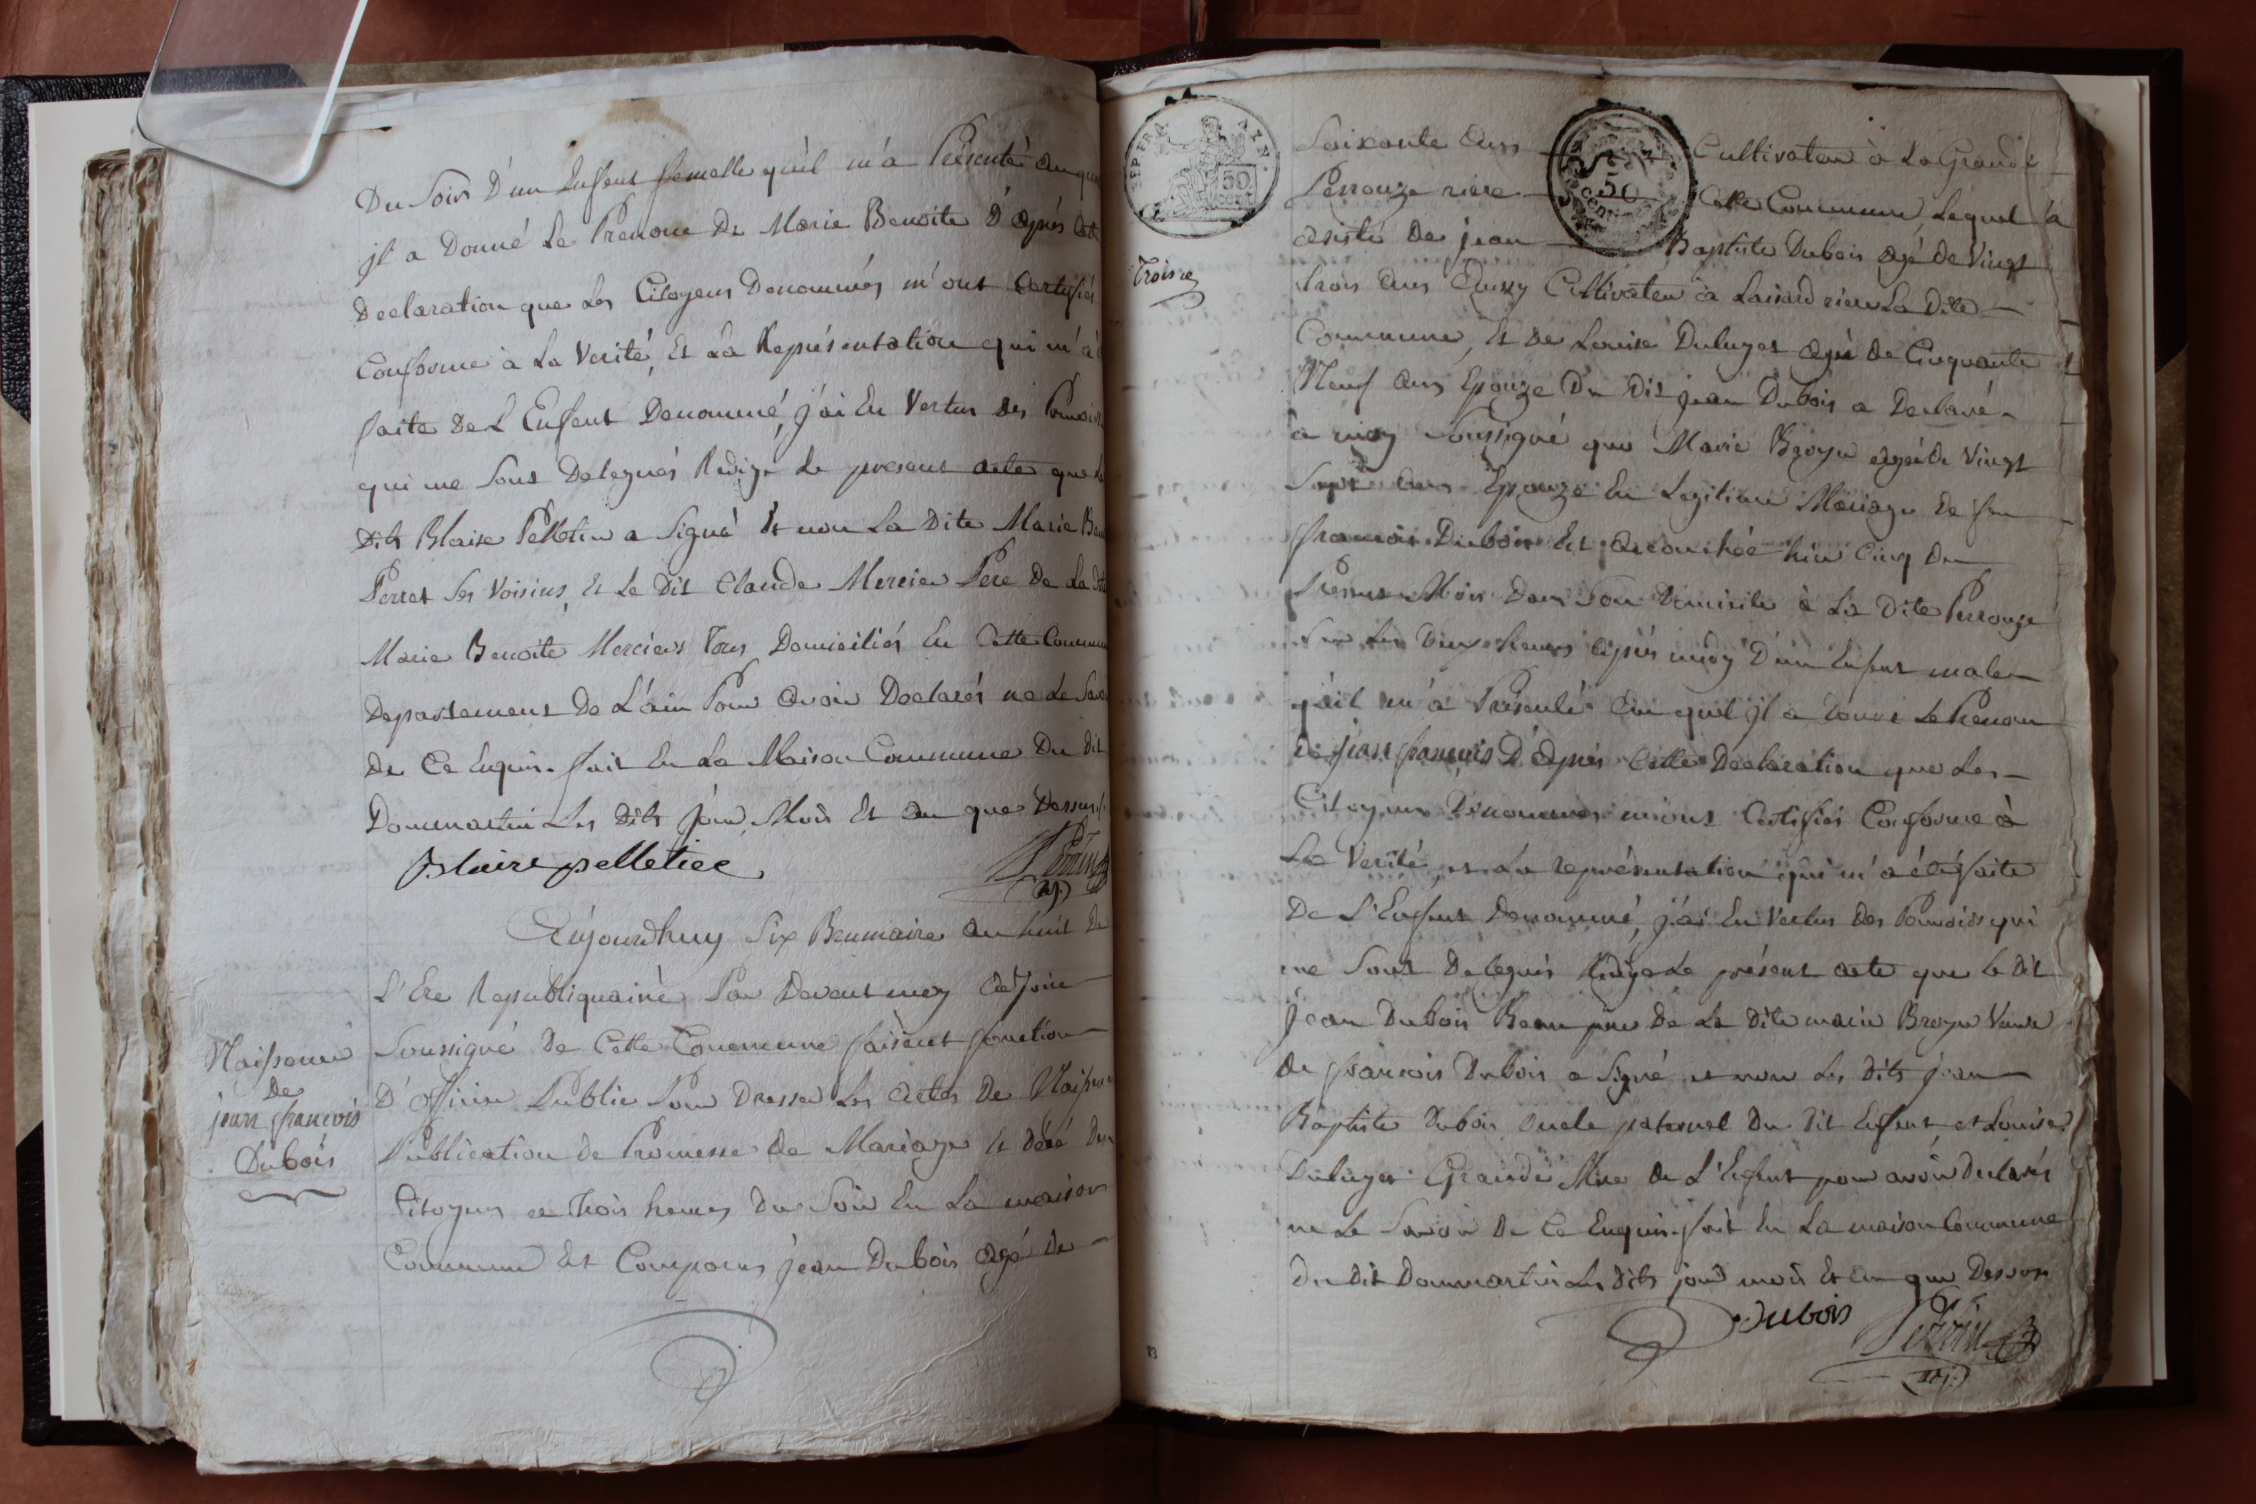 Du Soir D'un Enfent femelle qu'il m'a Présenté au quel
jl a Donné Le Prenom De Marie Benoite D'après Cette
Declaration que Les Citoyens Denommés m'ont Certifiés
Conforme à La Verité, Et La Représentation qui m'a
faite De L'Enfent Denommé, j'ai En Vertus des Pouvoirs
qui me Sont Delegués Redigé Le present acte que Le
Dit Blaise Pelletier a Signé Et non La Dite Marie
Perret Ses Voisins, Et Le Dit Claude Mercier Pere De La Dite
Marie Benoite Merciers Tous Domiciliés En Cette Commune
Departement De L'ain Pour avoir Declarés ne Le Savoir
De Ce Enquis. fait En La Maison Commune Du Dit
Dommartin Les Dits Jour, Mois Et an que Dessus
Blaise pelletier
Perrin
agt
Aujourdhuy Six Brumaire an huit De
L'Ere Republiquaine Par Devant moy adjoint
Soussigné De Cette Commune faisant fonction
D'officier Public Pour Dresser Les actes De Naissance
Publication de Promesse de Mariage Et décé Des
Citoyens a trois heures Du Soir En La maison
Commune Est Comparus jean Dubois agé De
Naissance
De
jean françois
Dubois
REP FRA
50
cent
Troisie
Soixante ans Cultivateur à La Grande
50
Centimes
Perrouze riere Cette Commune, Lequel a
asisté De jean Baptiste Dubois agé de Vingt
trois ans aussy Cultivateur à Laisard riere La Dite
Commune, Et de Louise Duluyet agé de Cinquante
Neuf ans Epouze Du Dit jean Dubois a Declaré
à moy Soussigné que Marie Broye agée de Vingt
Sept ans Epouze En Legitime Mariage de feu
françois Dubois Est acouchée hier Cinq du
Present Mois Dans Son Domicile à La Dite Perrouze
Sur Les heures après midy D'un Enfent male
qu'il m'a Présenté au quel jl a donné Le Prenom
de jean françois D'après Cette Declaration que Les
Citoyens Denommés m'ont Certifiés Conforme à
La Verité, et La représentation qui m'a été faite
De L'Enfent Denommé, j'ai En Vertus Des Pouvoirs qui
me Sont Delegués Redigé Le présent acte que Le Dit
jean Dubois Beau pere De La Dite marie Broye Veuve
de françois Dubois a Signé et non Les Dits jean
Baptiste Dubois oncle paternel Du Dit Enfent et Louise
Duluyet Grande Mere De L'Enfent pour avoir Declarés
ne Le Savoir De Ce Enquis. fait En La maison Commune
Du Dit Dommartin Les Dits jour mois Et an que Dessus
Dubois
Perrin
agt